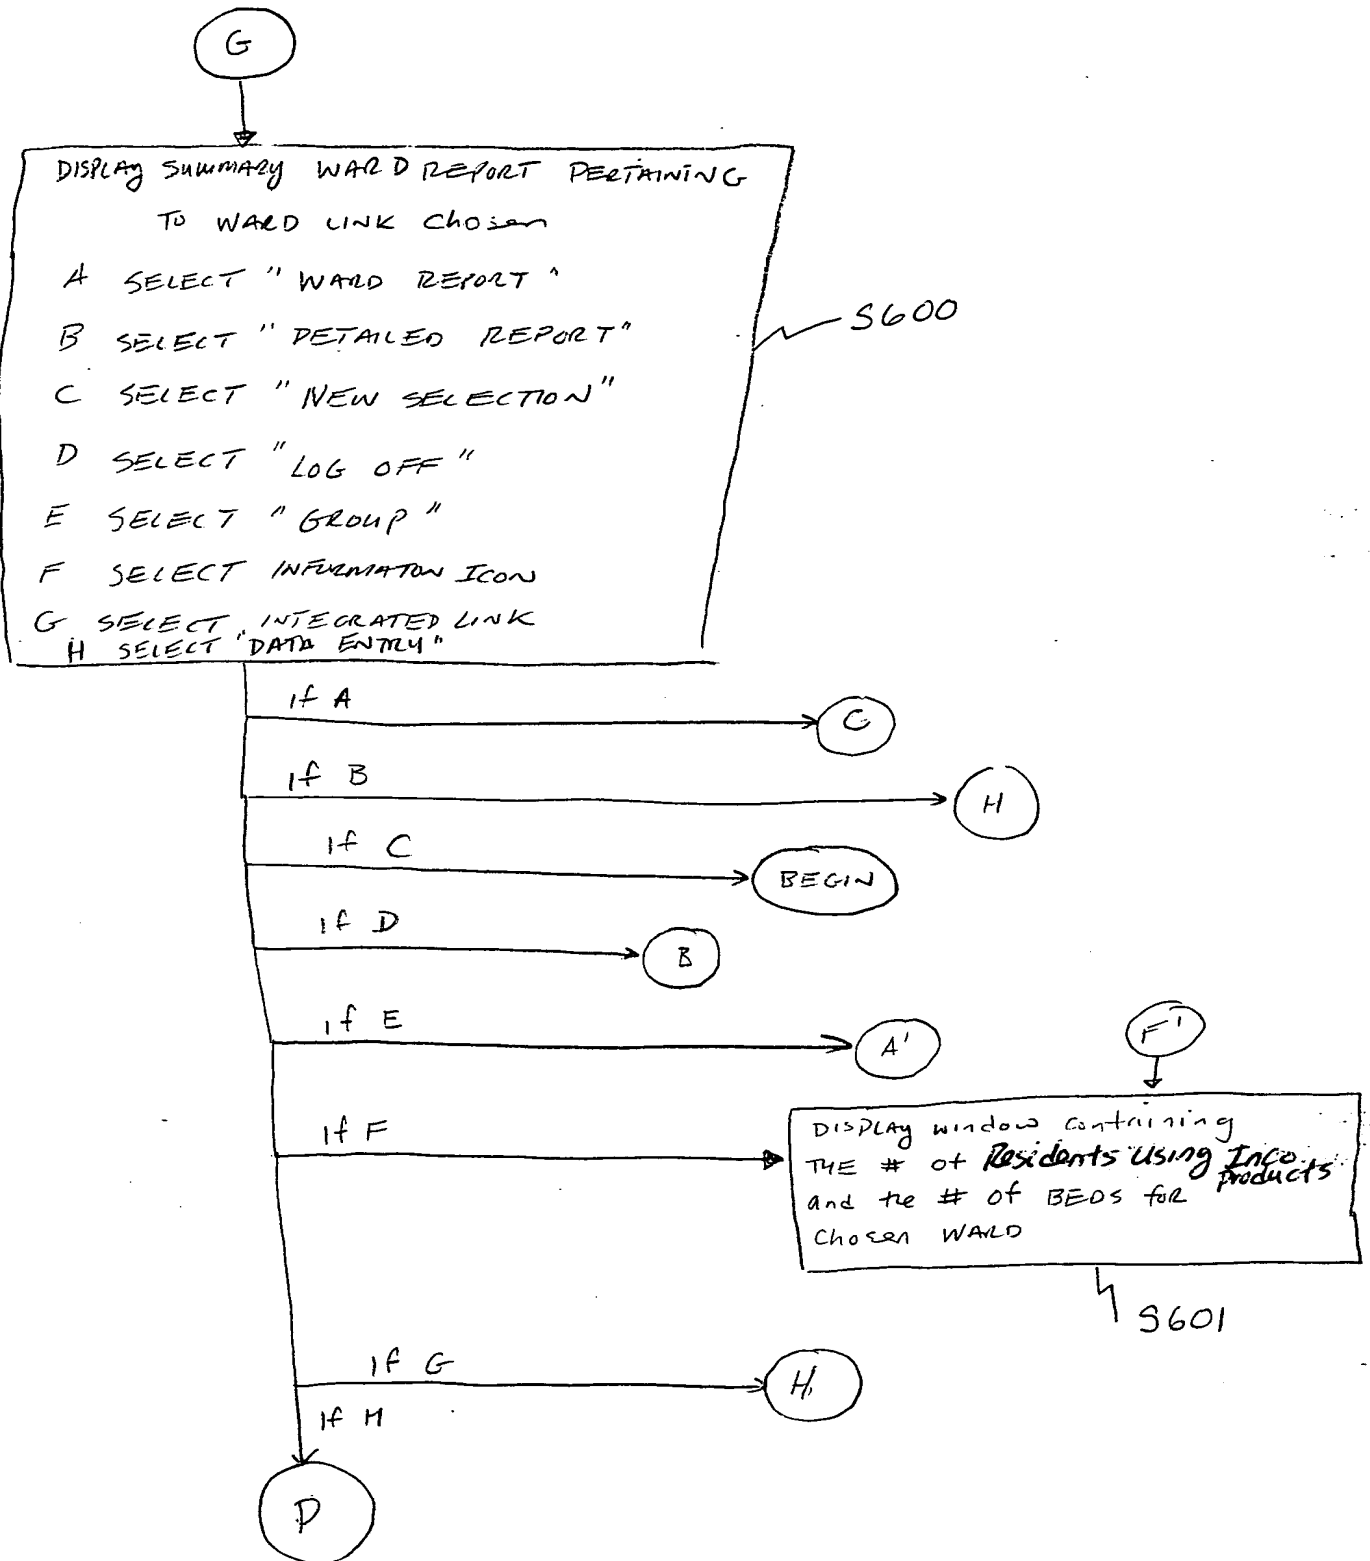 G
DISPLAY SUMMARY WARD REPORT PERTAINING
TO WARD LINK Chosen
A SELECT "WARD REPORT"
B SELECT "DETAILED REPORT"
C SELECT "NEW SELECTION"
D SELECT "LOG OFF"
E SELECT "GROUP"
F SELECT INFORMATON ICON
G SELECT INTEGRATED LINK
H SELECT "DATA ENTRY"
S600
If A
C
If B
H
If C
BEGIN
If D
B
If E
A'
F'
If F
DISPLAY window containing
THE # of Residents Using Inco.
Products
and the # of BEDS for
Chosen WARD
S601
If G
H
If H
D